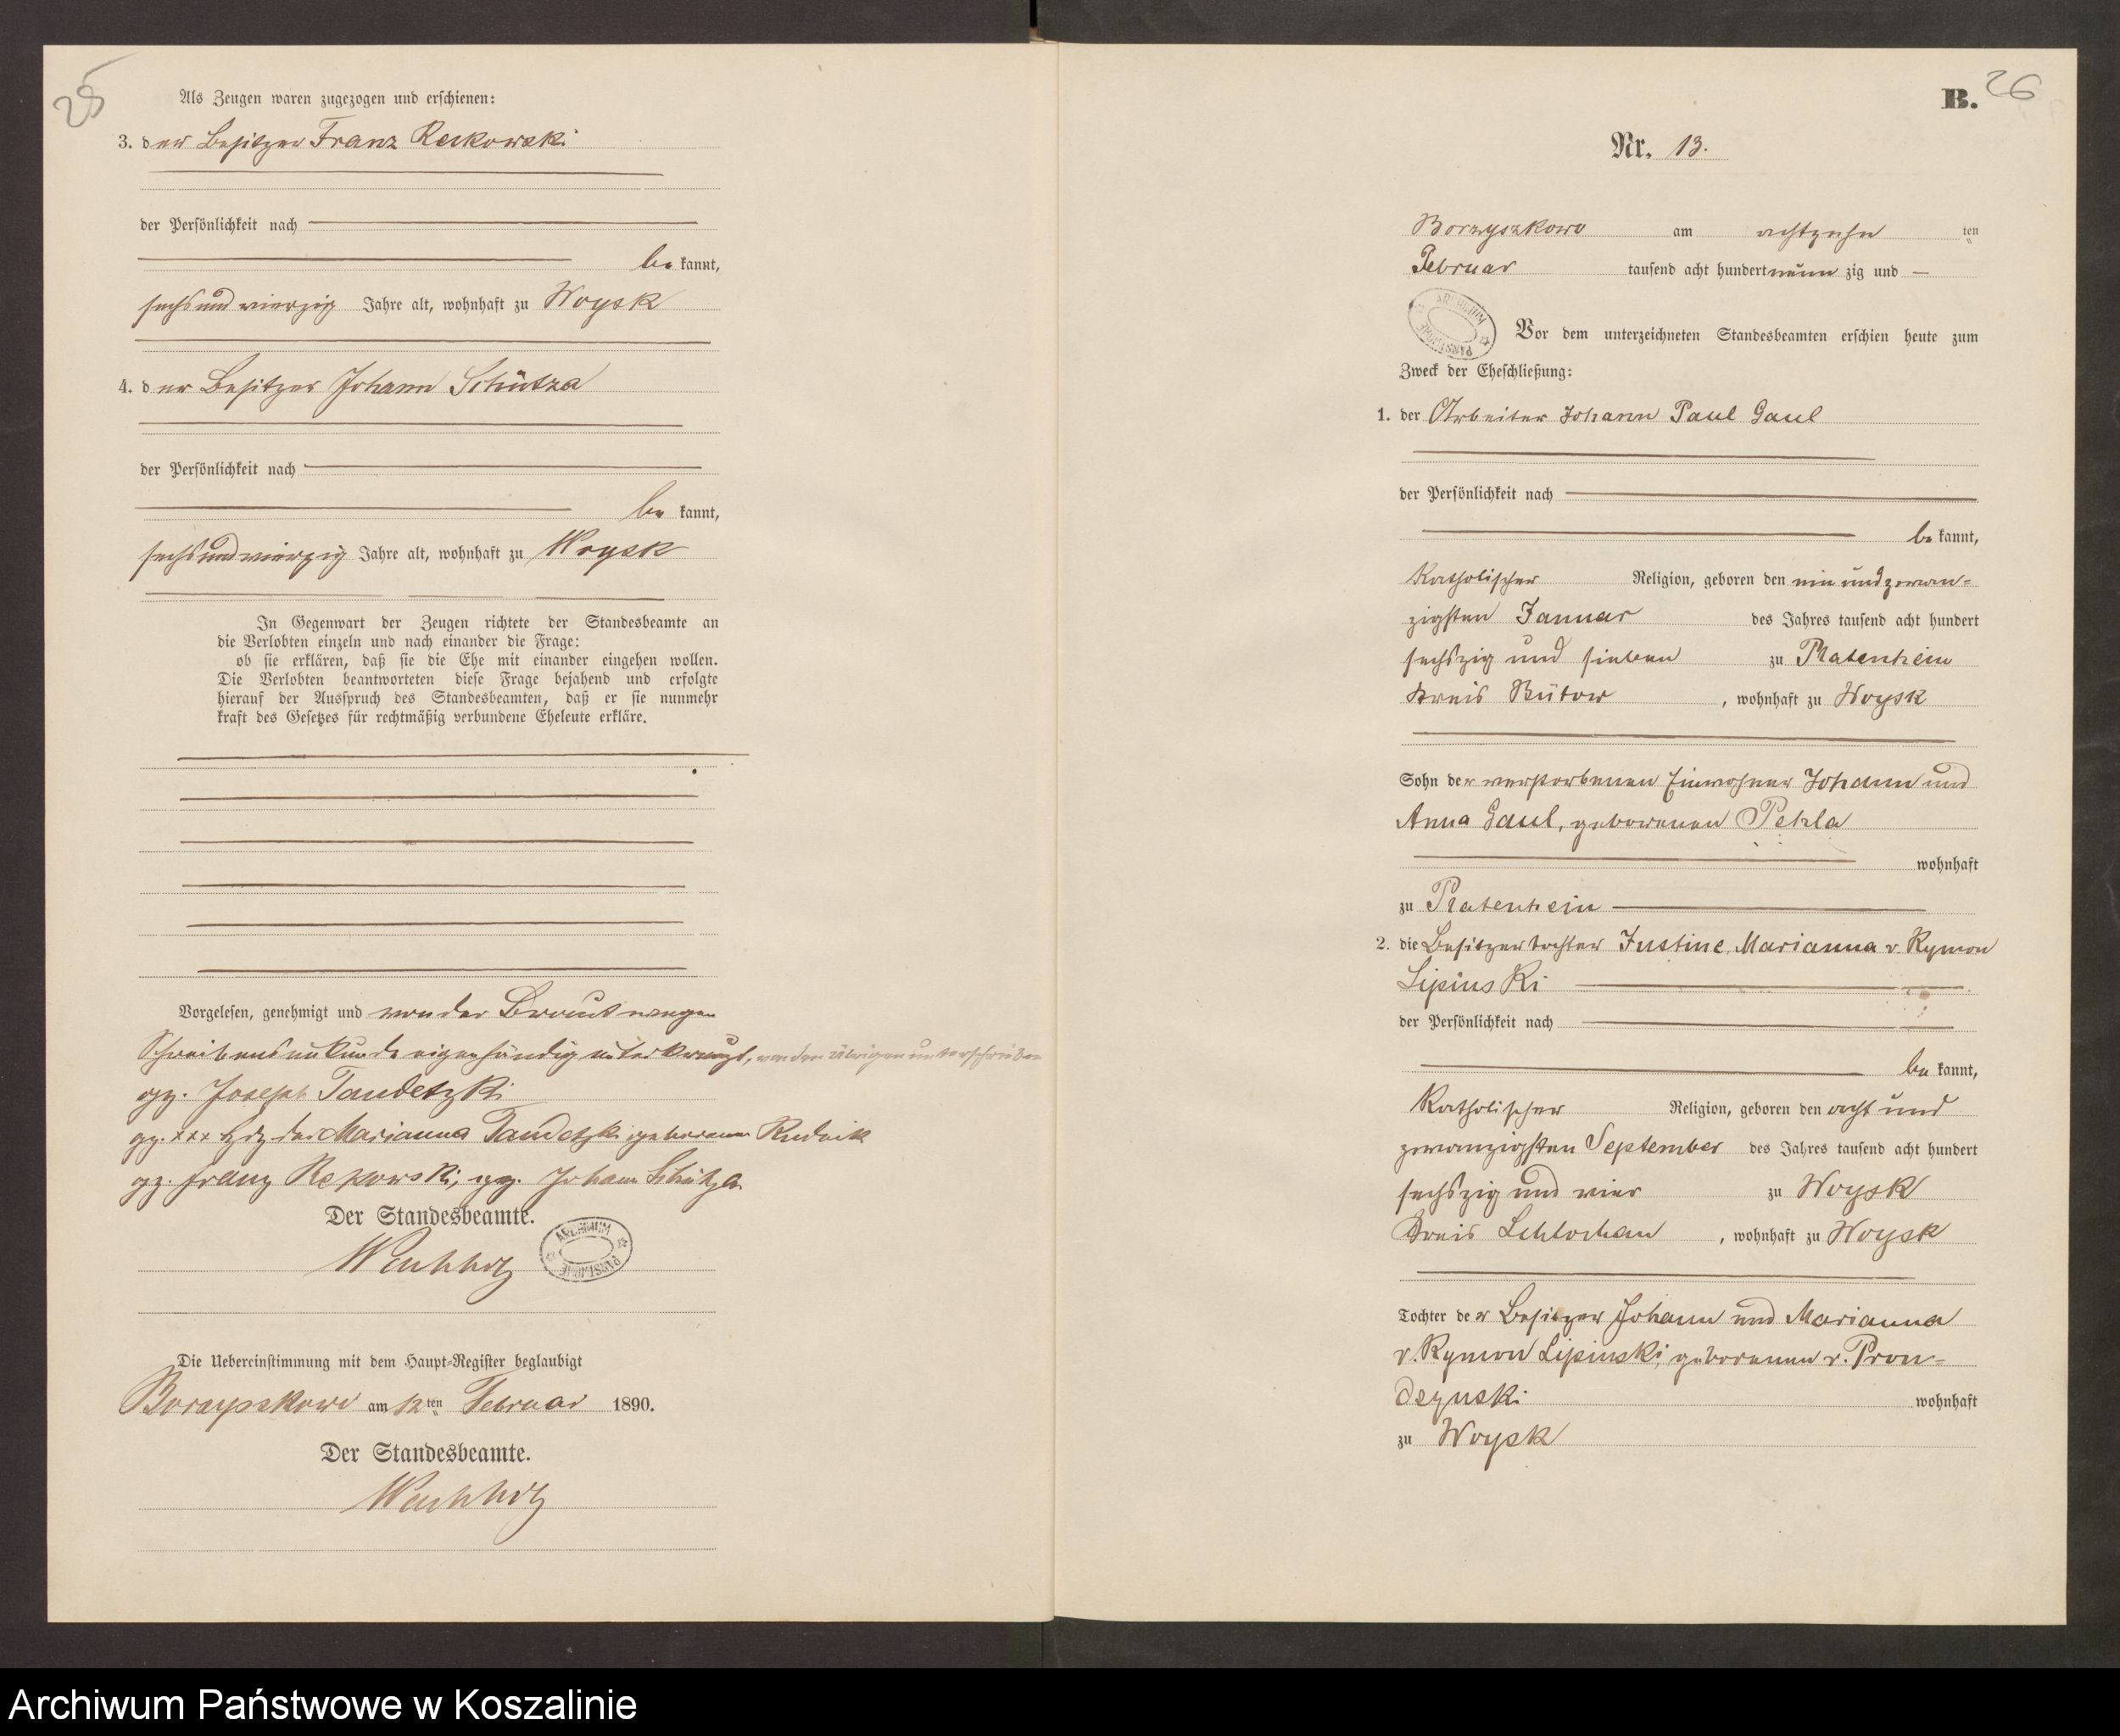 25
Als Zeugen waren zugezogen und erschienen:
3. der Besitzer Franz Reckowski
der Persönlichkeit nach
be kannt,
sechs und vierzig Jahre alt, wohnhaft zu Woysk
4. der Besitzer Johann Schütza
der Persönlichkeit nach
be kannt,
sechs und vierzig Jahre alt, wohnhaft zu Woysk
In Gegenwart der Zeugen richtete der Standesbeamte an
die Verlobten einzeln und nach einander die Frage:
ob sie erklären, daß sie die Ehe mit einander eingehen wollen.
Die Verlobten beantworteten diese Frage bejahend und erfolgte
hierauf der Ausspruch des Standesbeamten, daß er sie nunmehr
kraft des Gesetzes für rechtmäßig verbundene Eheleute erkläre.
Vorgelesen, genehmigt und von der Braut wegen
Schreibensunkunde eigenhändig unterkreuzt, von den übrigen unterschrieben
gz. Joseph Tandetzki
gz. xxx Hdz der Marianna Tandetzki geborenen Rudnik
gz. Franz Rekowski, gz. Johann Schütza.
Der Standesbeamte.
ARCHIWUM PAŃSTWOWE
Die Uebereinstimmung mit dem Haupt-Register beglaubigt
Borzyszkowo am 12 ten Februar 1890.
Der Standesbeamte.
B. 26
Nr. 13.
Borzyszkowo am achtzehn ten
Februar tausend acht hundert neun zig und —
ARCHIWUM PAŃSTWOWE
Vor dem unterzeichneten Standesbeamten erschien heute zum
Zweck der Eheschließung:
1. der Arbeiter Johann Paul Gaul
der Persönlichkeit nach
be kannt,
Katholischer Religion, geboren den ein und zwan-
zigsten Januar des Jahres tausend acht hundert
sechszig und sieben zu Platenhein
Kreis Bütow, wohnhaft zu Woysk
Sohn der verstorbenen Einwohner Johann und
Anna Gaul, geborenen Pehla
wohnhaft
zu Platenhein
2. die Besitzertochter Justine Marianna v. Rymon
Lipinski
der Persönlichkeit nach
be kannt,
Katholischer Religion, geboren den acht und
zwanzigsten September des Jahres tausend acht hundert
sechszig und vier zu Woysk
Kreis Schlochau, wohnhaft zu Woysk
Tochter der Besitzer Johann und Marianna
v. Rymon Lipinski, geborenen v. Pron-
dzynski wohnhaft
zu Woysk
Archiwum Państwowe w Koszalinie